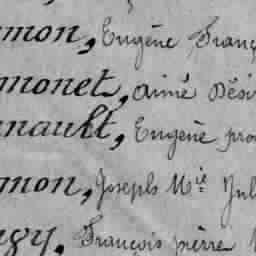 mon, Eugène Franç
monet, aimé Dési
nault, Eugène pro
mon, Joseph Mie Jul
gy, François pierre